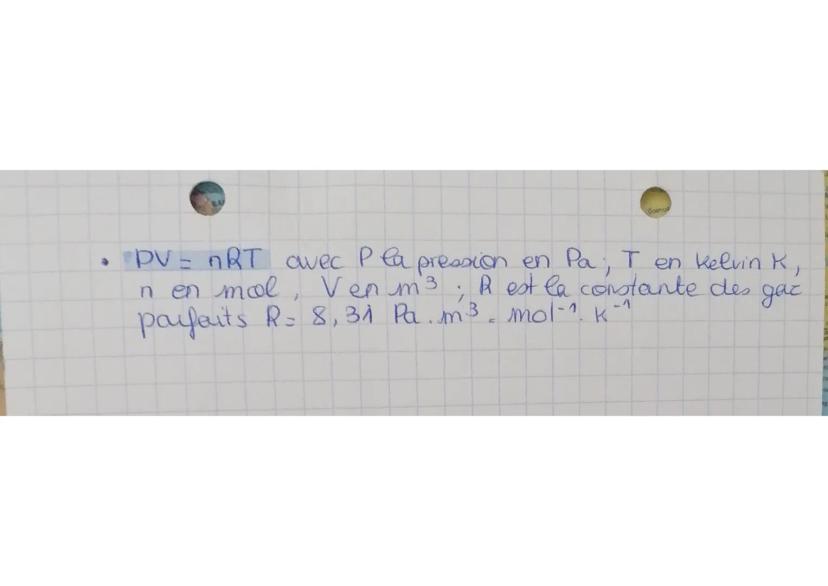 • PV = nRT avec P la pression en Pa, T en Kelvin K,
n en mol, V en m³ ; R est la constante des gaz
parfaits R = 8,31 Pa.m³.mol⁻¹.K⁻¹